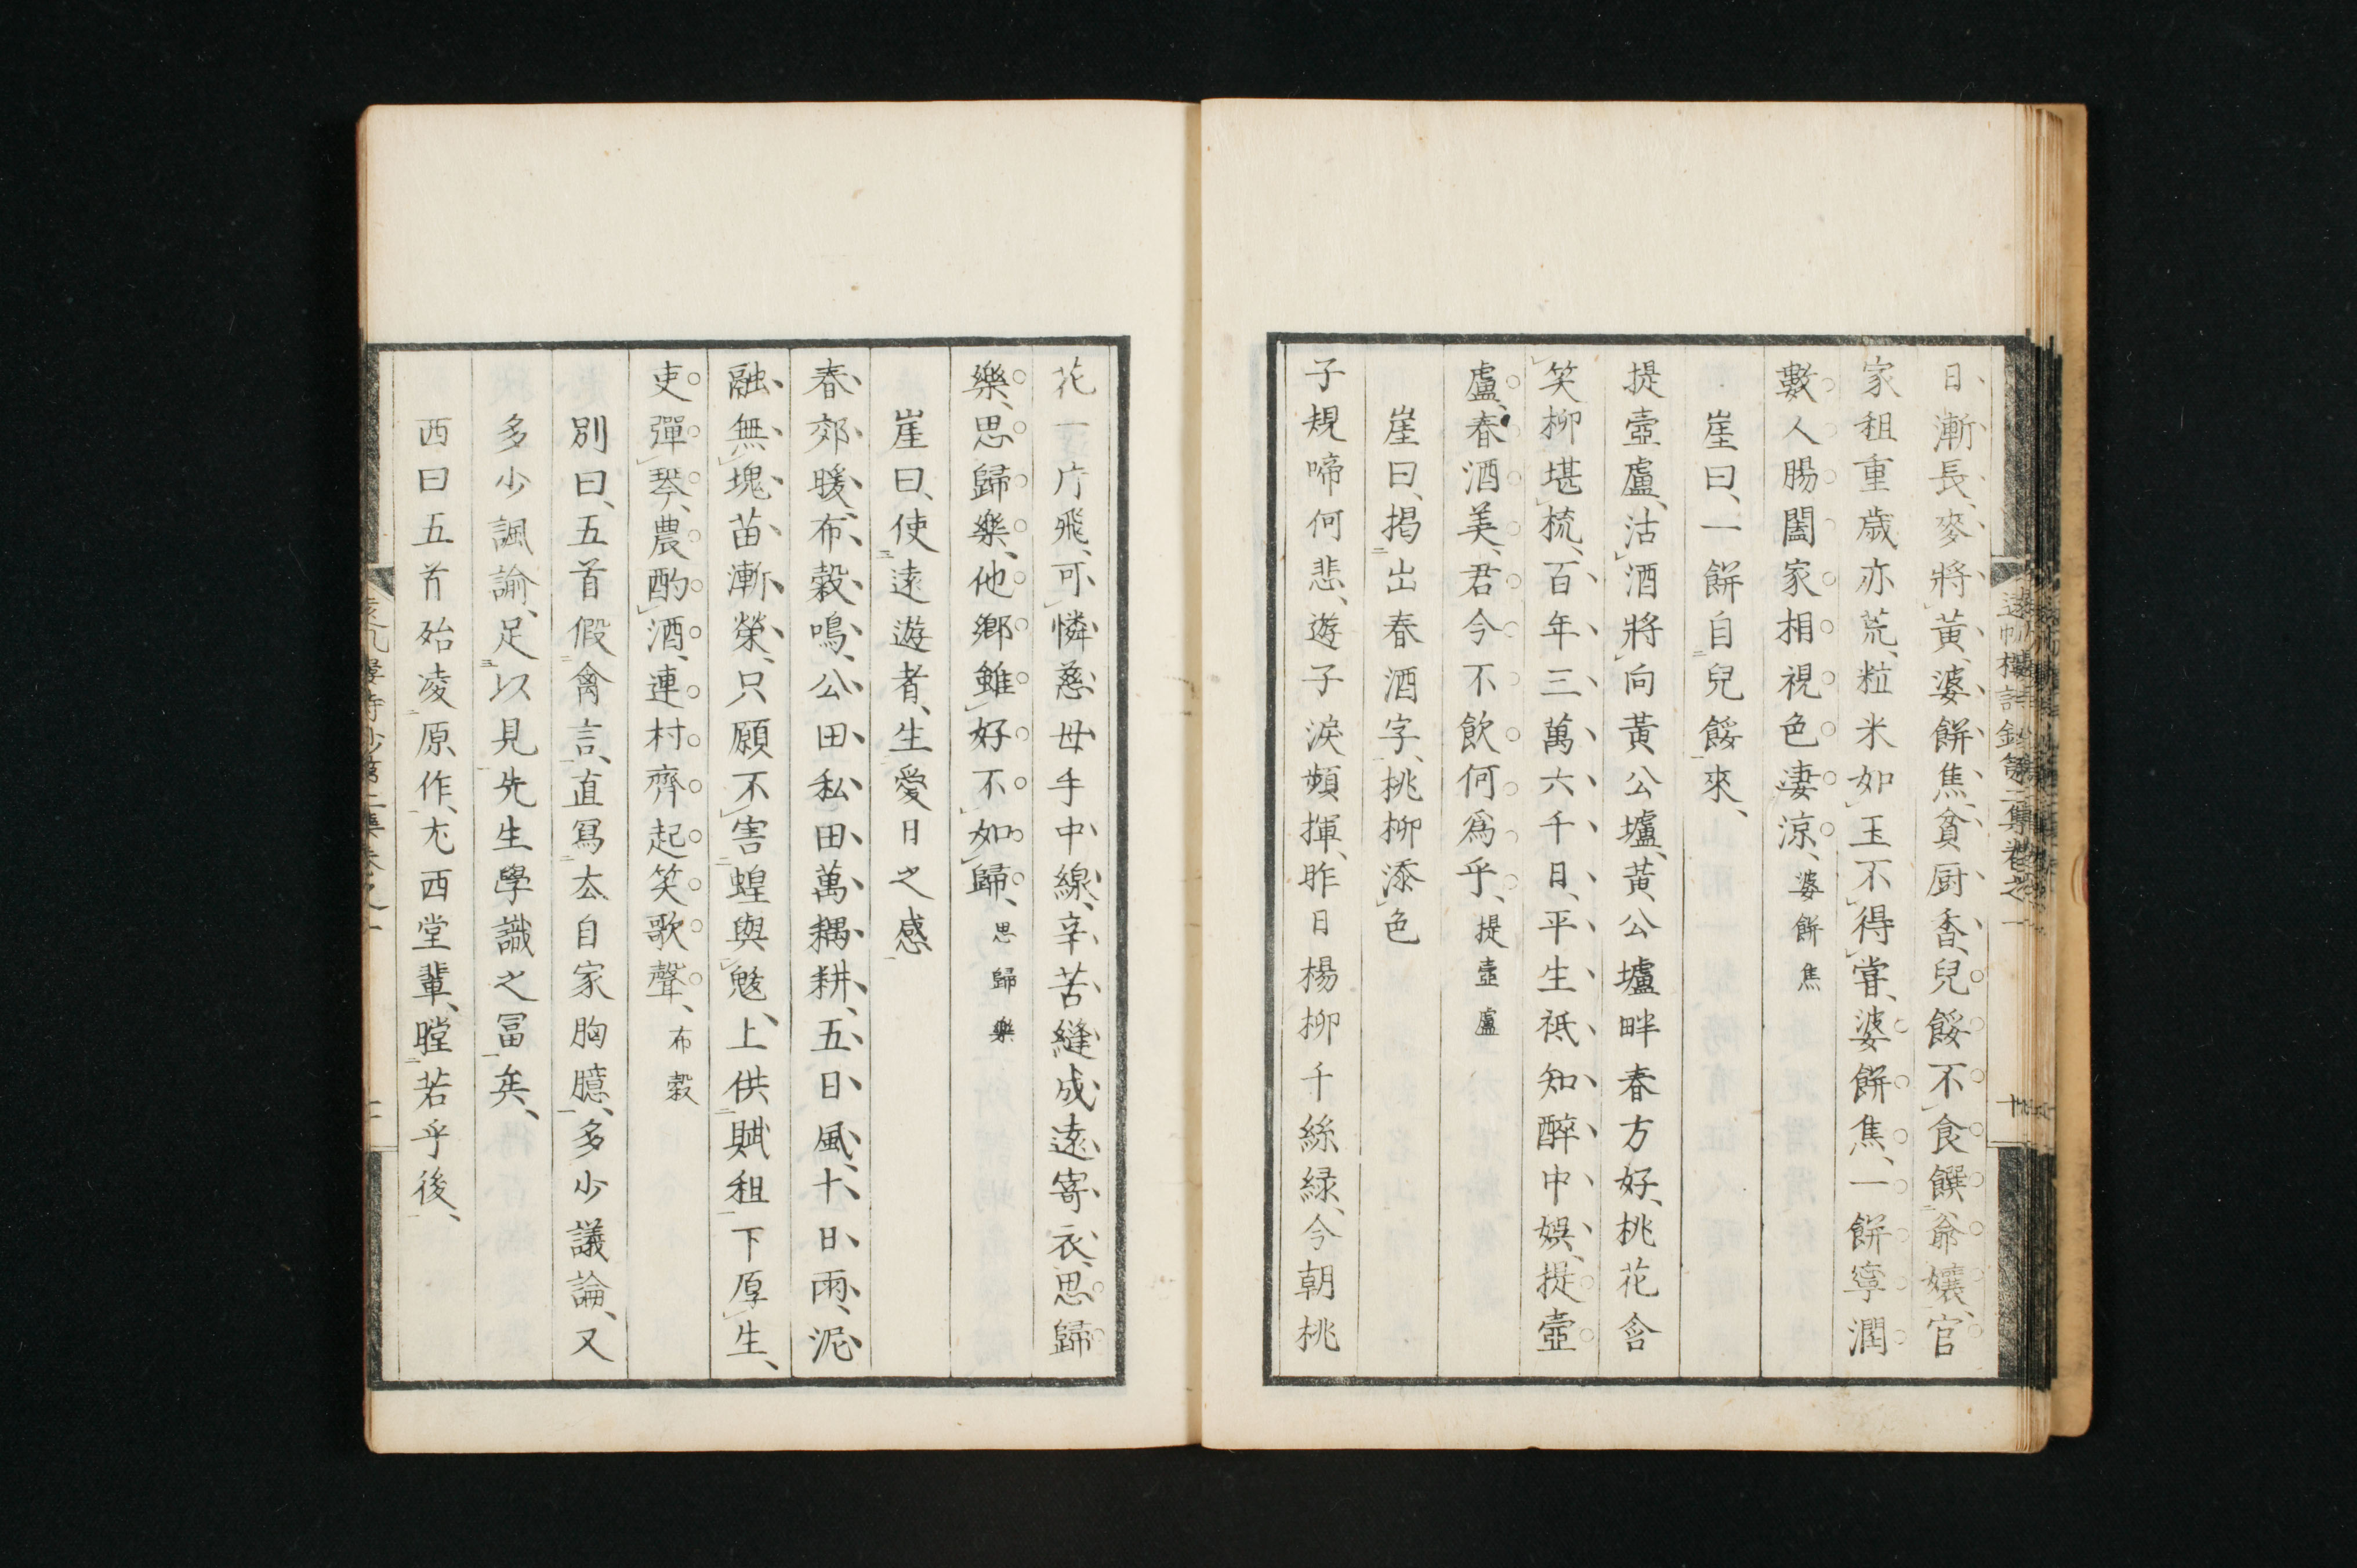 日漸長、麥將黃、婆餅焦、貧厨香、兒餒不食饌爺孃、官
家租重歲亦荒、粒米如玉不得嘗、婆餅焦、一餅寧潤
數人腸闔家相視色淒涼、婆餅焦
崖曰、一餅自兒餒來、
提壺盧、沽酒將向黃公壚、黃公壚畔春方好、桃花含
笑柳堪梳、百年三萬六千日、平生祇知醉中娛、提壺
盧、春酒美、君今不飲何爲乎、提壺盧
崖曰、揭出春酒字、桃柳添色
子規啼何悲、遊子淚頻揮、昨日楊柳千絲緑、今朝桃
花一片飛、可憐慈母手中線、辛苦縫成遠寄衣、思歸
樂、思歸樂、他鄉雖好不如歸、思歸樂
崖曰、使遠遊者、生愛日之感
春郊暖、布穀鳴、公田私田萬耦耕、五日風、十日雨、泥
融無塊苗漸榮、只願不害蝗與魃、上供賦租下厚生、
吏彈琴、農酌酒、連村齊起笑歌聲、布穀
別曰、五首假禽言、直寫去自家胸臆、多少議論、又
多少諷諭、足以見先生學識之冨矣、
西曰五首殆凌原作、尤西堂輩、瞠若乎後、